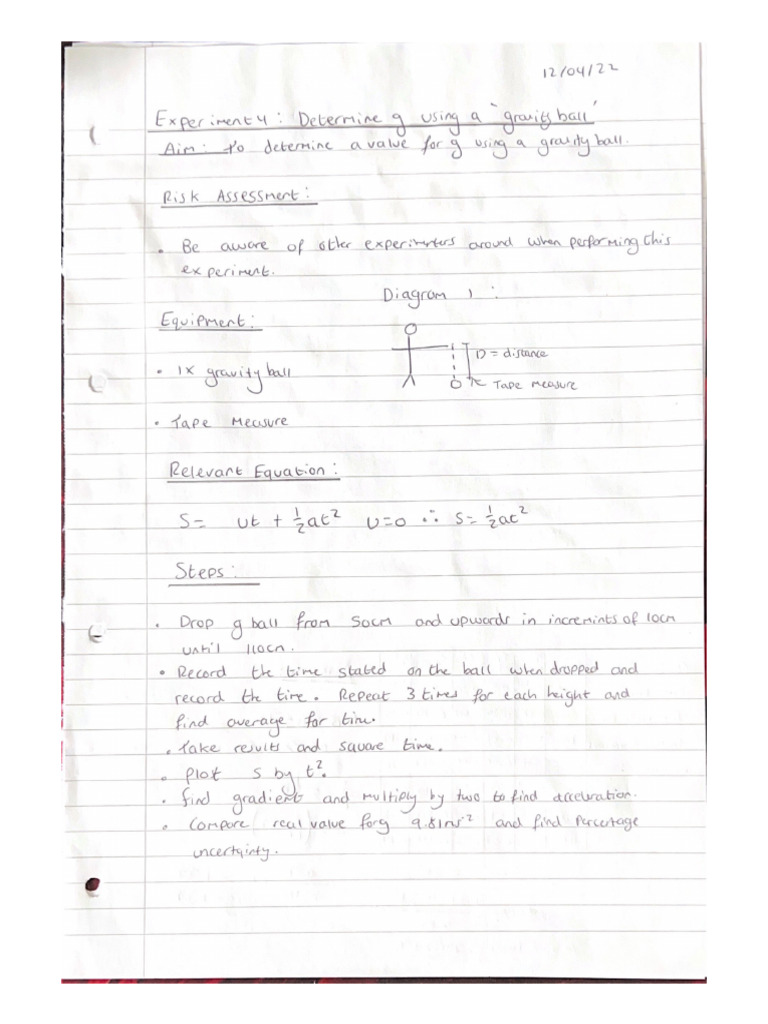 12/04/22
Experiment 4: Determine g using a "gravity ball"
Aim: to determine a value for g using a gravity ball.
Risk Assessment:
• Be aware of other experimenters around when performing this
experiment.
Diagram 1:
Equipment:
D = distance
• 1x gravity ball
Tape measure
• Tape Measure
Relevant Equation:
S= ut + ½at² U=0 ∴ S= ½at²
Steps:
• Drop g ball from 50cm and upwards in incremints of 10cm
until 110cm.
• Record the time stated on the ball when dropped and
record the time. Repeat 3 times for each height and
find average for time.
• Take results and square time.
• Plot S by t².
• find gradient and multiply by two to find acceleration.
• Compare real value for g 9.81ms⁻² and find percentage
uncertainty.